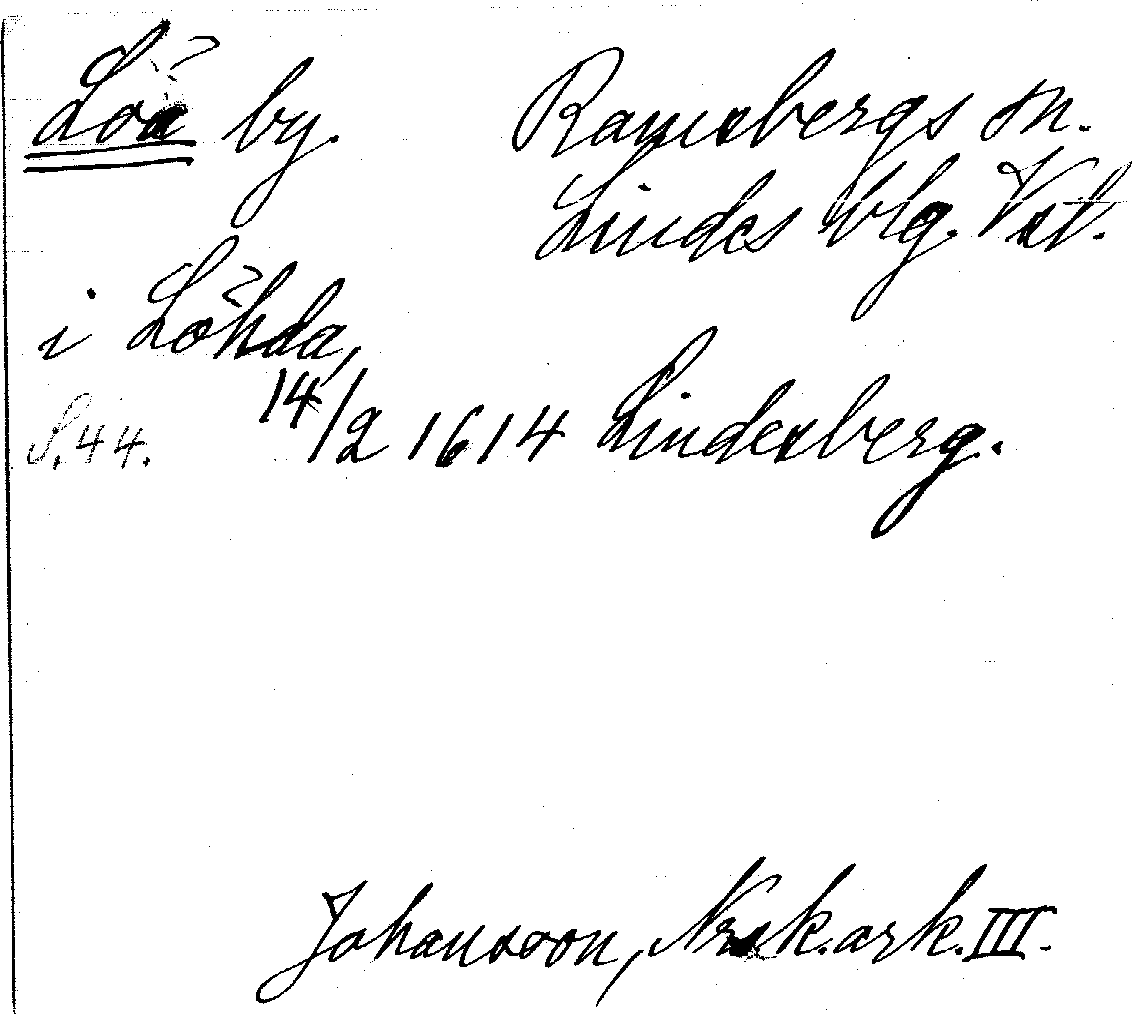 Löa by. Ramsbergs sn.
Lindes blg. Vstl.
i Löhda,
S. 44. 14/2 1614 Lindesberg.
Johansson, Nrsk. ark. III.